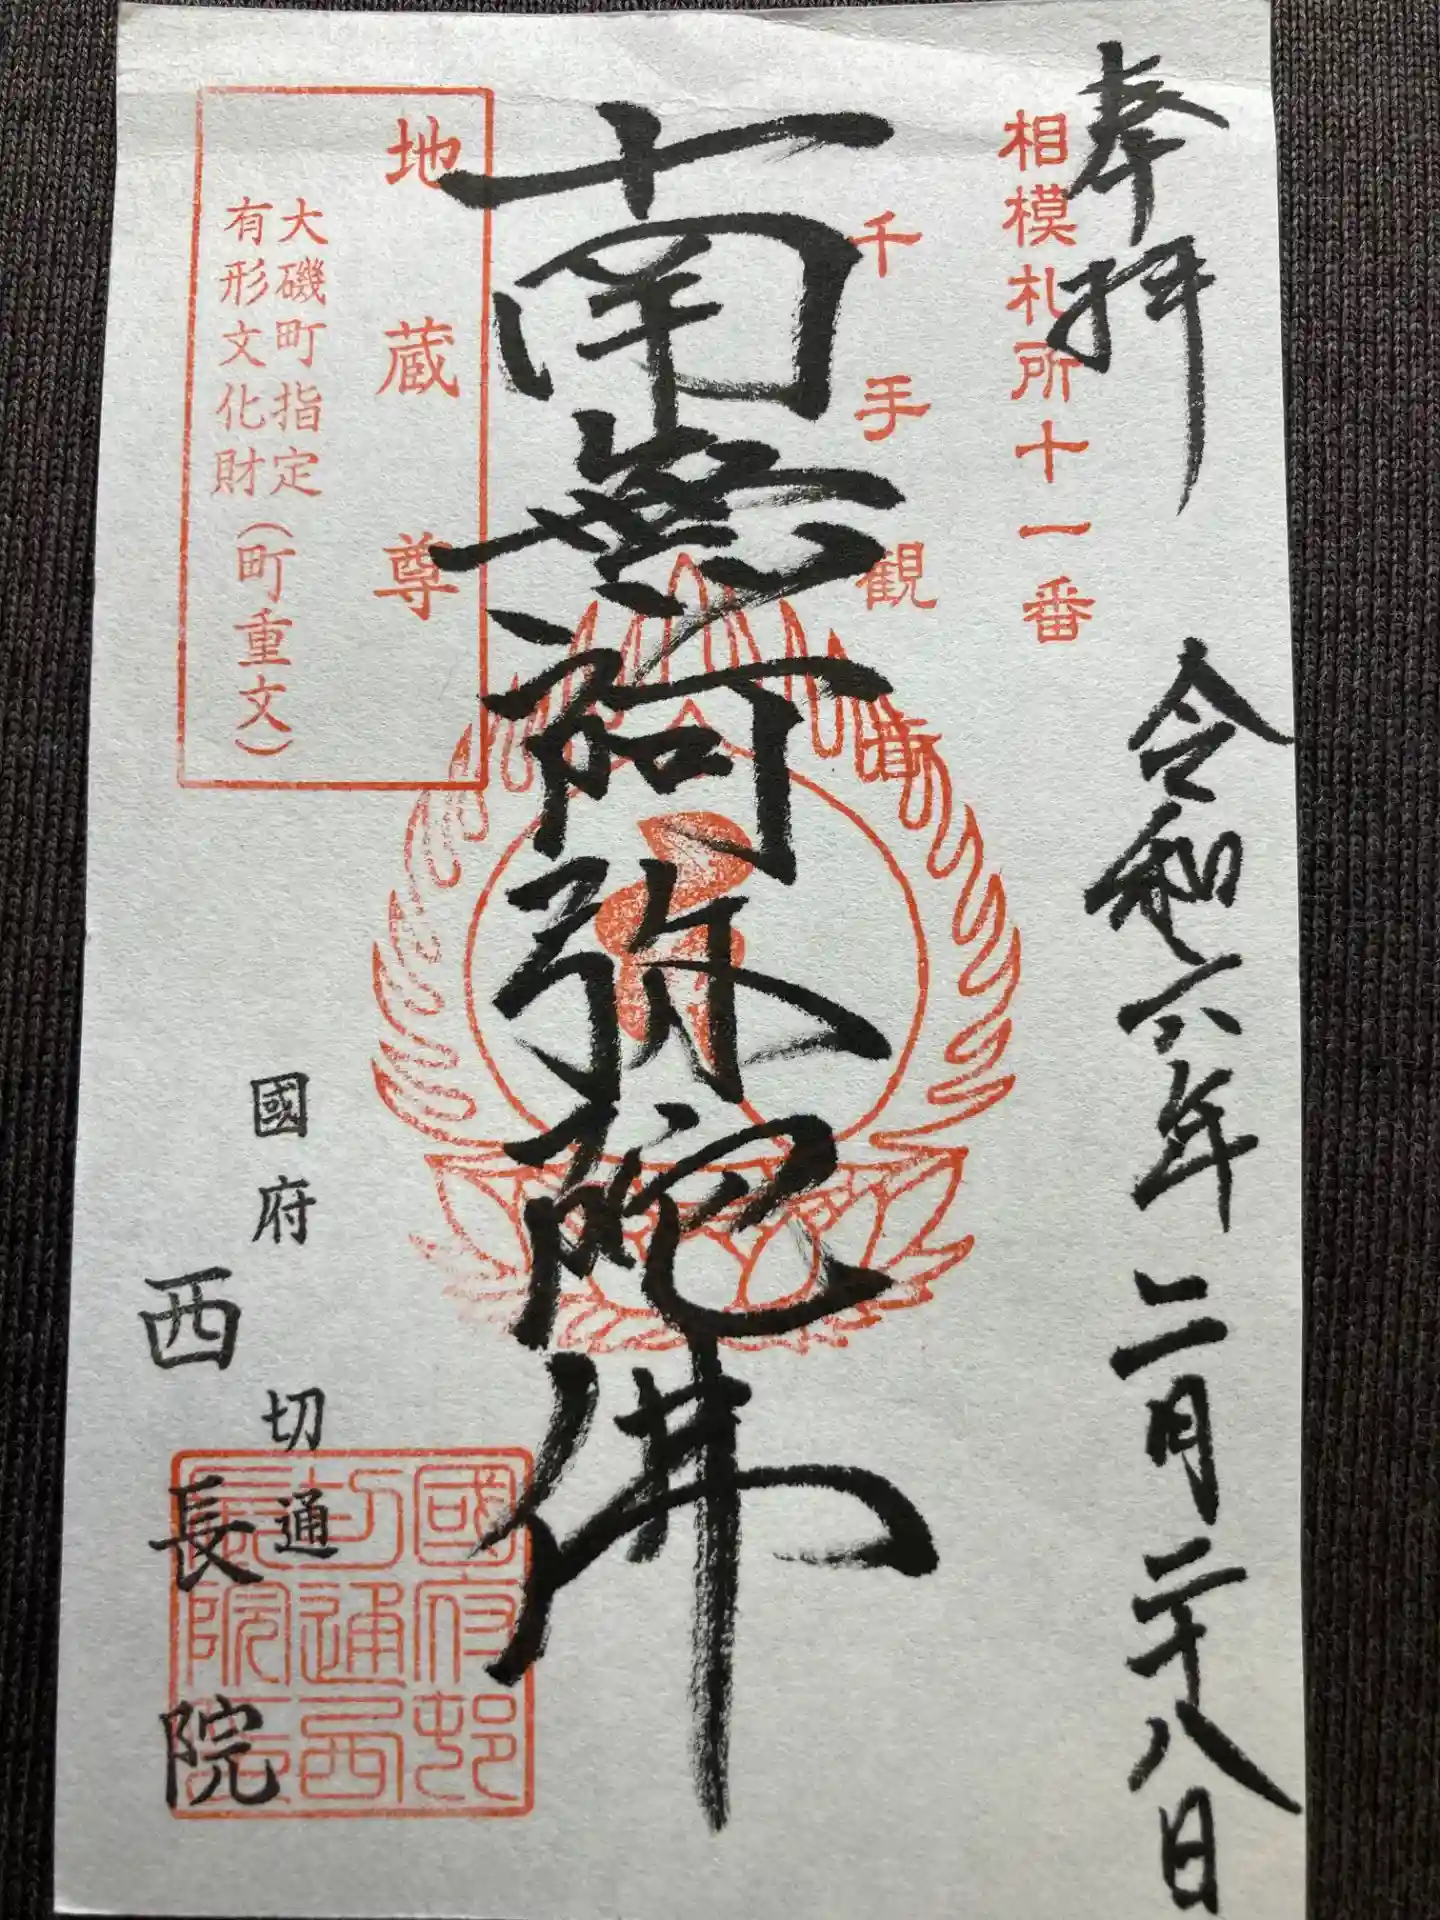 奉拝
令和六年二月二十八日
相模札所十一番
千手観音
南無阿弥陀佛
地蔵尊
大磯町指定
有形文化財（町重文）
國府
切通
西長院
國府邨
切通西
長院